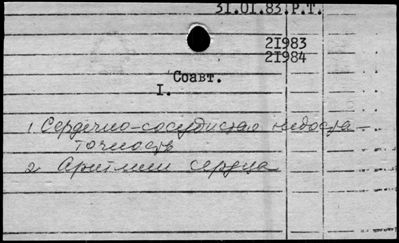 31.01.83.Р.Т.
21983
21984
Соавт.
I.
1. Сердечно-сосудистая недоста
точность
2. Аритмии сердца